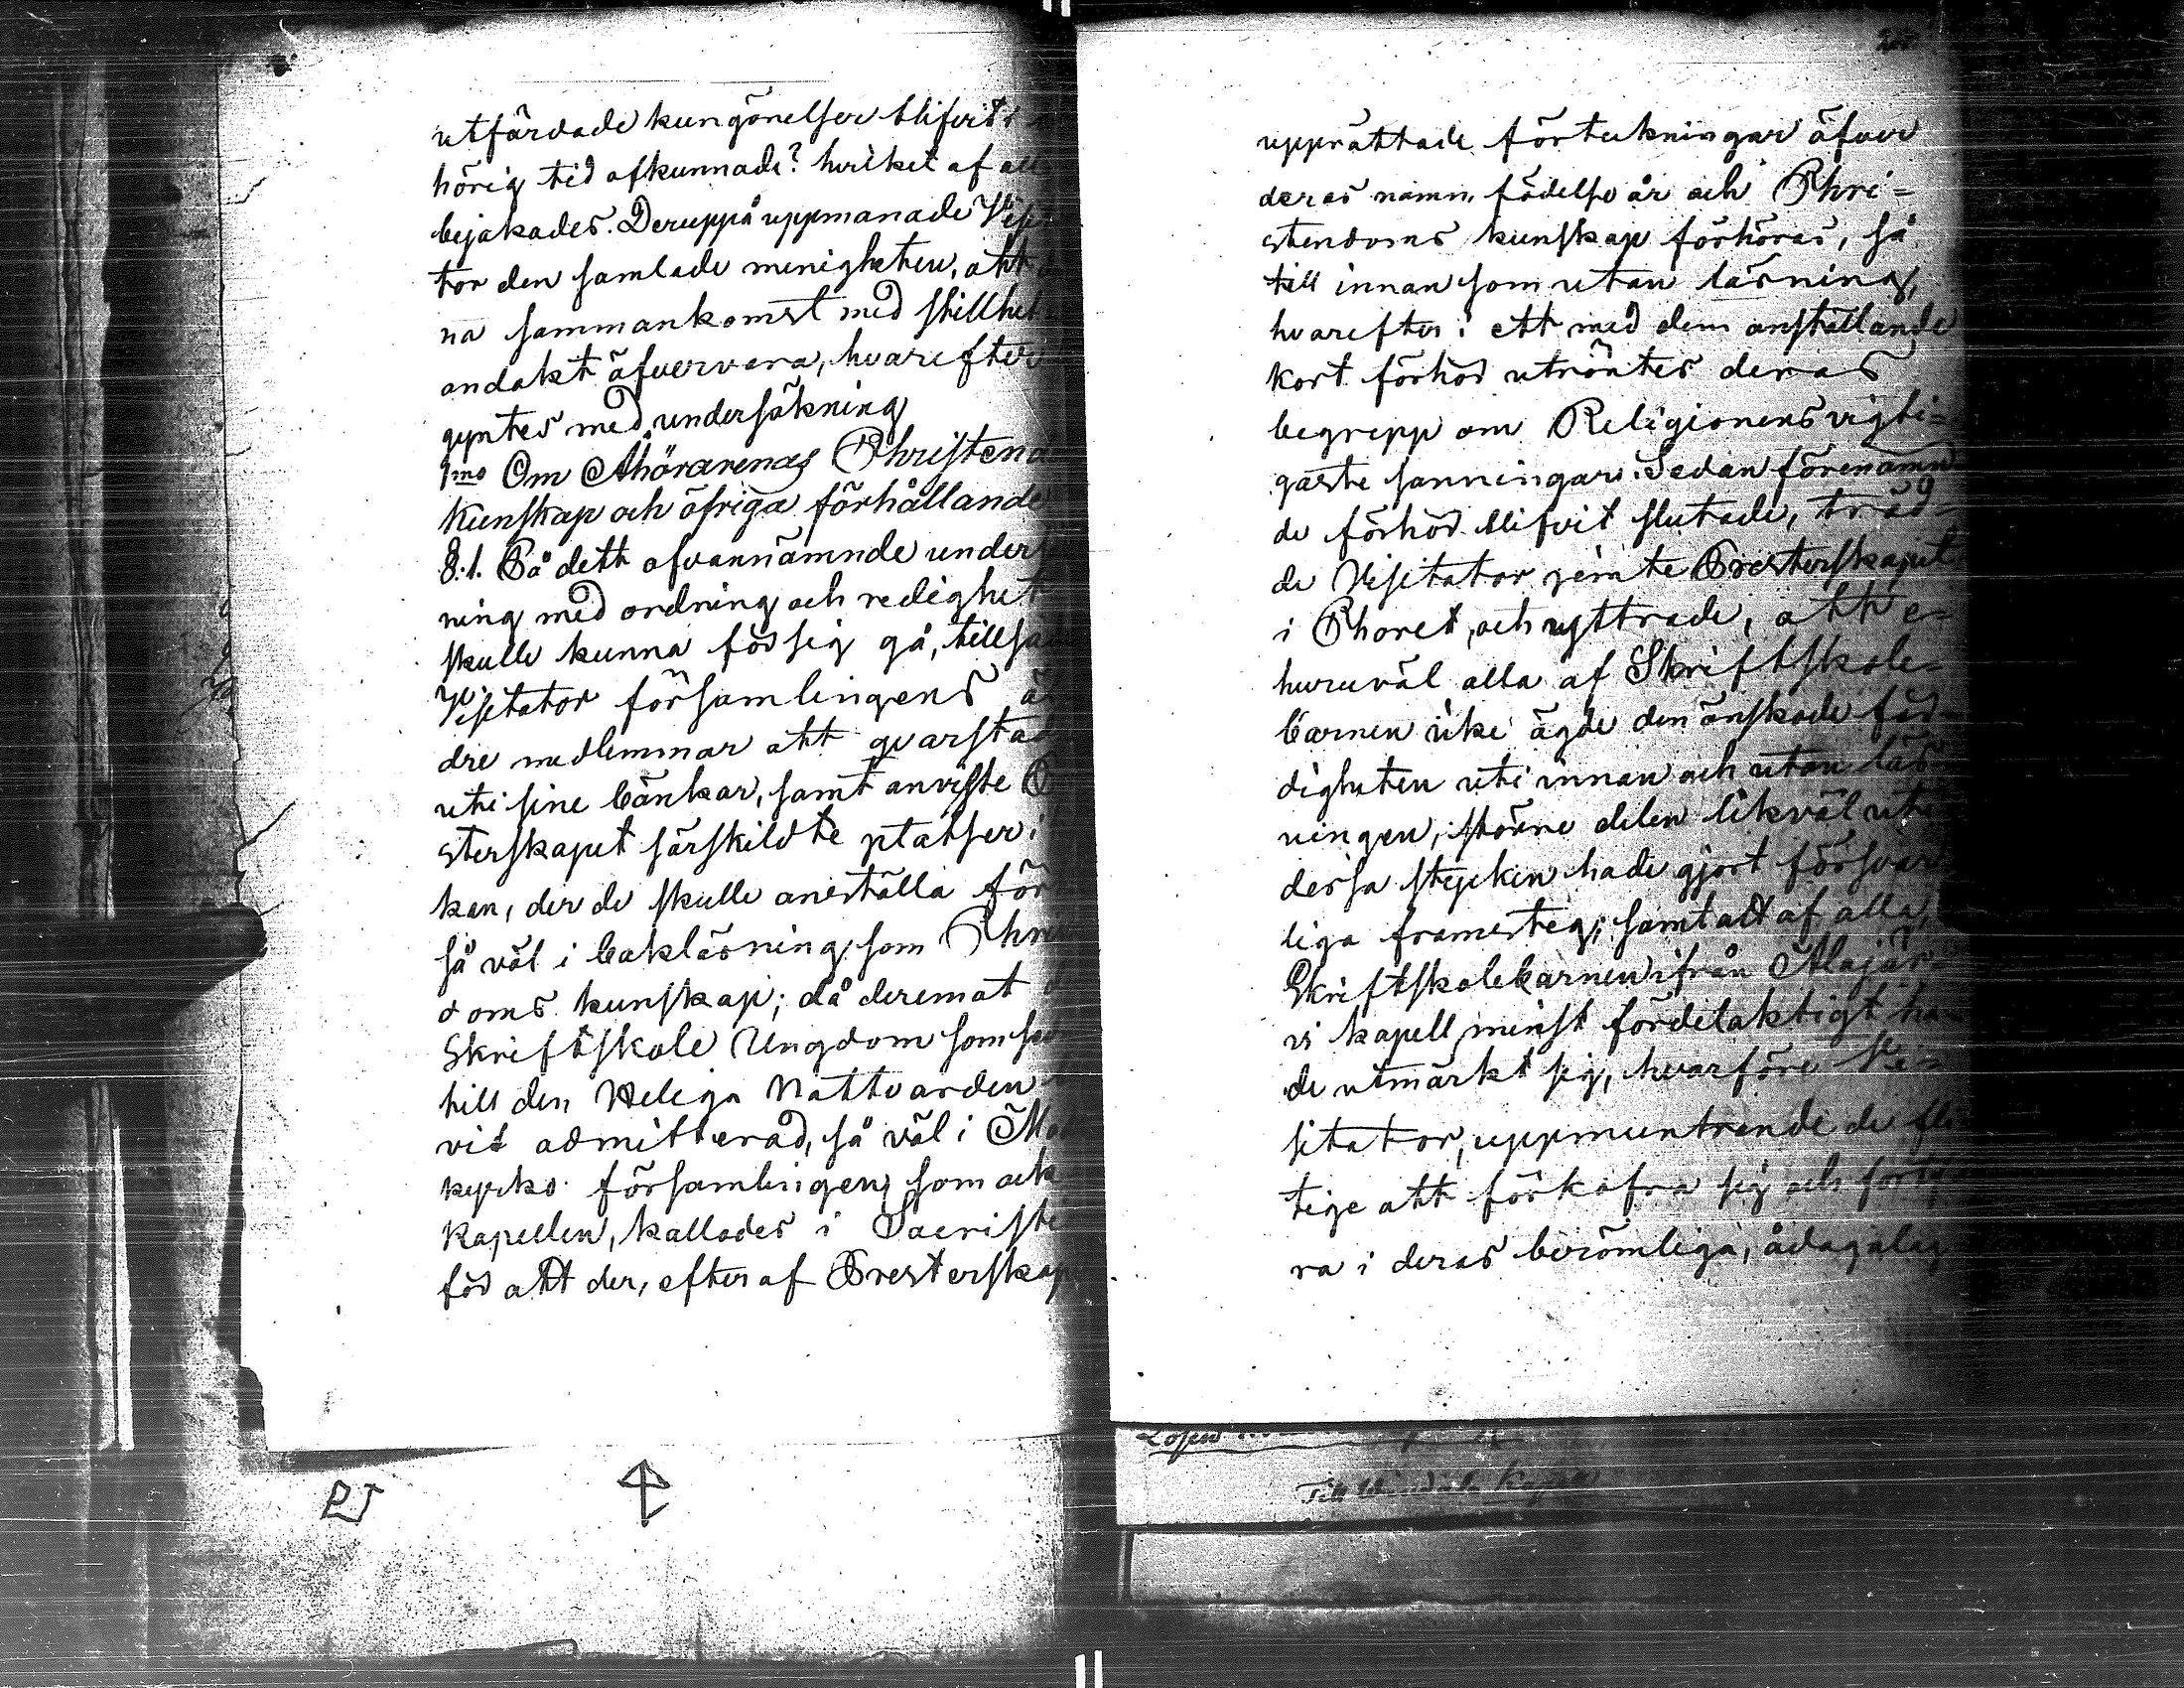 utfärdade kungörelser blifvit i
hörig tid afkunnade? hvilket af all
bejakades. Deruppå uppmanade Visi
tor den samlade menigheten, att
na sammankomst med stillhet
andakt öfvervara, hvarefter
gyntes med undersökning
1mo Om Åhörarenas Christend
Kunskap och öfriga förhållande
§. 1. På dett ofvannämnde under
ning med ordning och redighet
skulle kunna för sig gå, tillsade
Visitator församlingens äl
dre medlemmar att qvarstad
uti sine bänkar, samt anviste P
sterskapet särskildte platser i
kan, der de skulle anställa för
så väl i bokläsning som Chri
doms kunskap; då deremot
Skriftskole Ungdom som
till den Heliga Nattvarden
vit admitterad, så väl i Mo
kyrko församlingen som ock
Kapellen, kallades i Sacristi
för att der, efter af Presterskap
upprättade förteckningar öfver
deras namn, födelse år och Chri=
stendoms kunskap förhöras, så
till innan som utan läsning,
hvarefter i ett med dem anställande
kort förhör utröntes deras
begrepp om Religionens vigti=
gaste sanningar. Sedan förenämn
de förhör blifvit slutade, träd=
de Visitator jemte Presterskapet
i Choret, och yttrade, att e=
huruväl alla af Skriftskole=
barnen icke ägde den önskade fär=
digheten uti innan och utan läs
ningen, större delen likväl uti
dessa stycken hade gjort försvar
liga framsteg; samt att af alla,
Skriftskolebarnen ifrån Alajär
vi kapell minst fördelaktigt ha
de utmärkt sig, hvarföre Vi=
sitator, uppmuntrande de fli
tige att förkofra sig och fortfa
ra i deras berömliga, ådagalag
Till Kappa